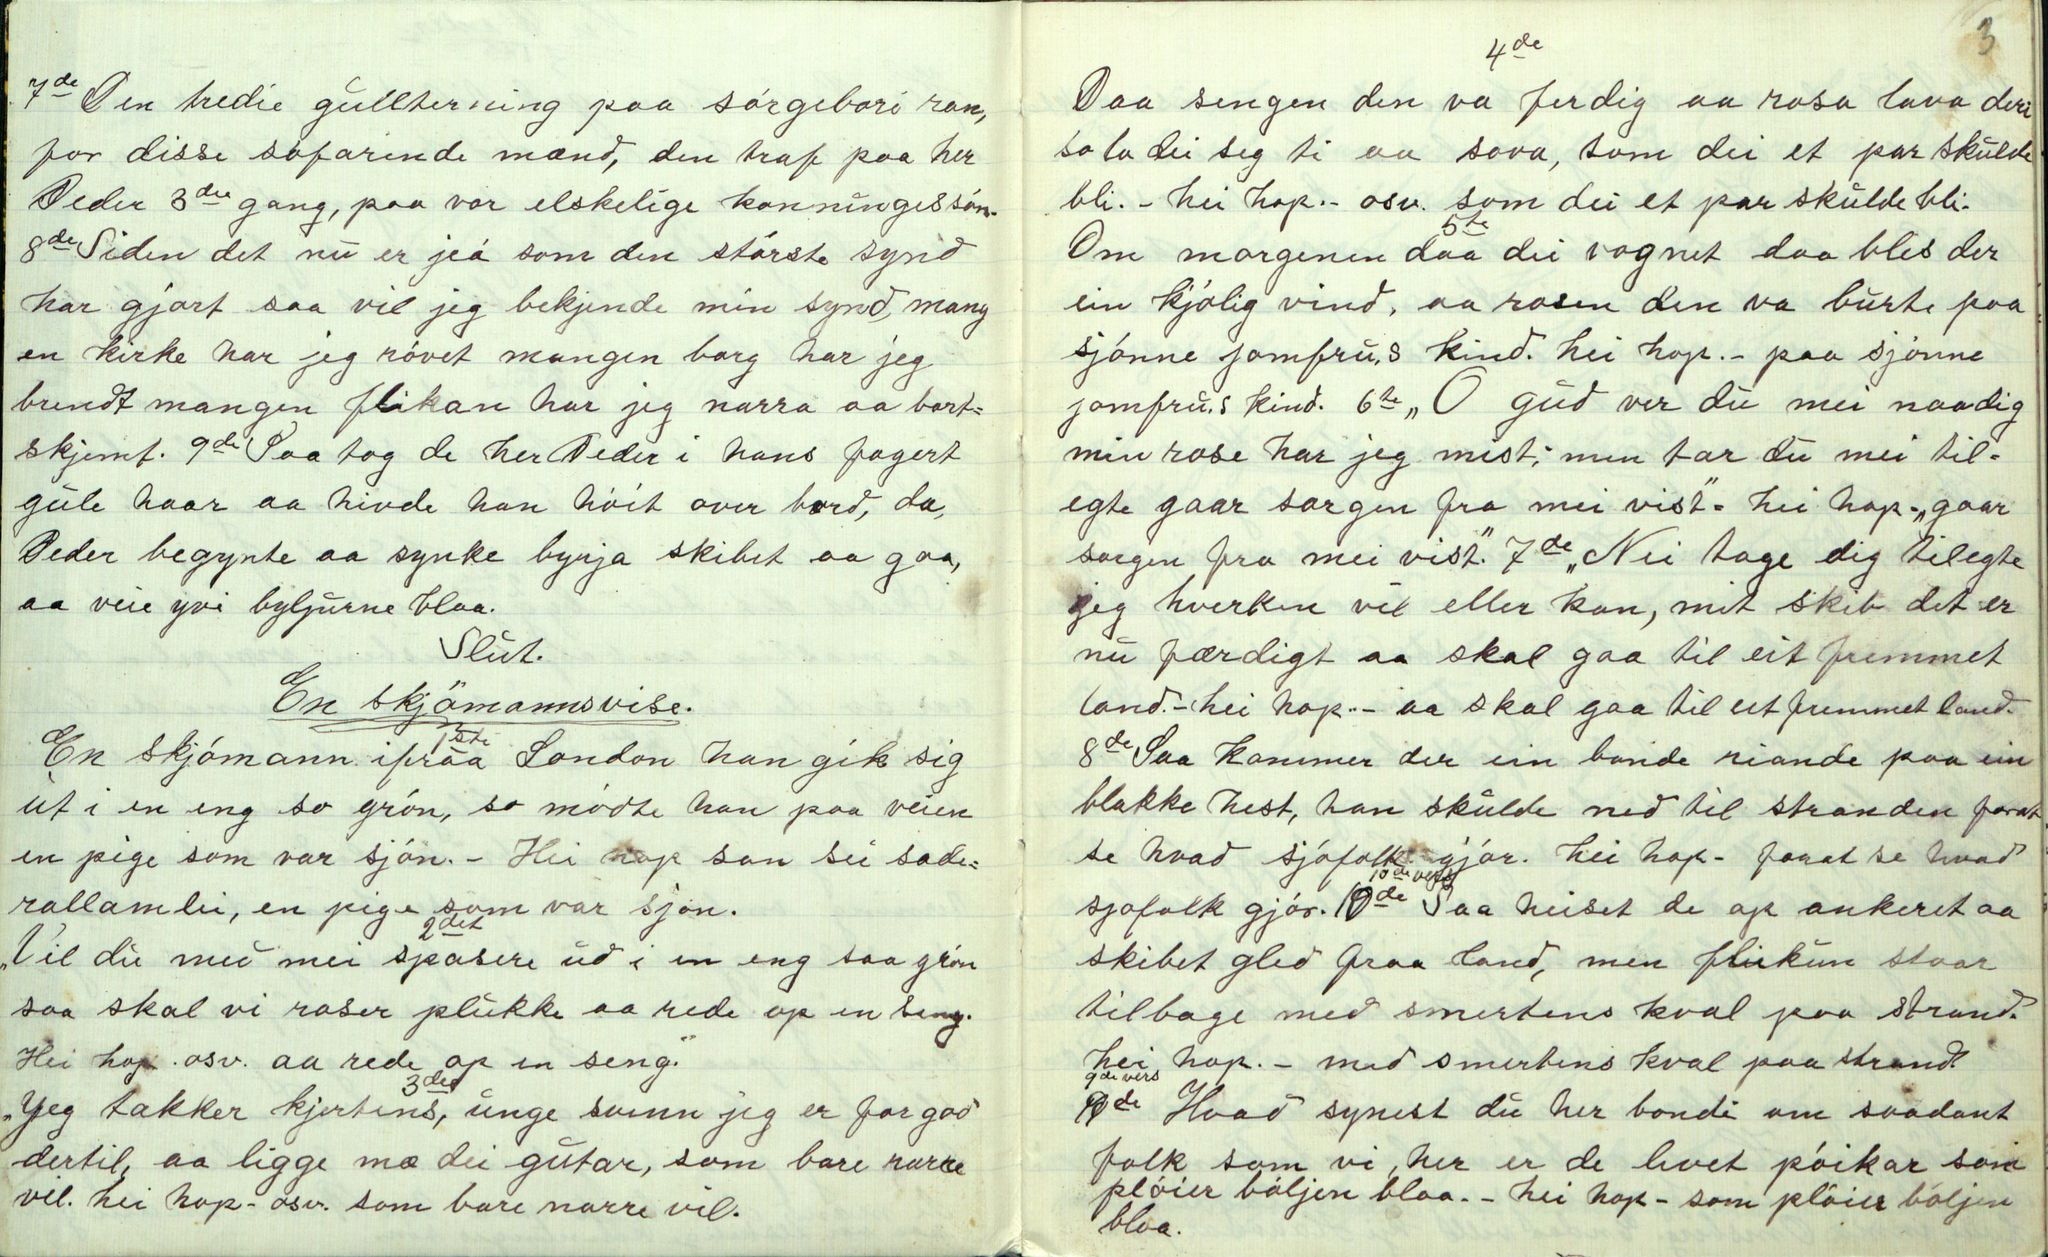 7de Den tredie gullterning paa sórgebori ran,
for disse sófarende mænd, den traf paa her
Peder 3die gang, paa vor elskelige konningessón.
8de Siden det nu er jeá som den stórste synd
har gjórt saa vil jeg bekjende min synd, mang
en kirke har jeg róvet mangen borg har jeg
brendt mangen flikan har jeg narra aa bort=
skjemt. 9de Saa tog de her Peder i hans fagert
gule haar aa hivde han hóit over bord, da,
Peder begynte aa synke byrja skibet aa gaa,
aa veie yvi byljurne blaa.
Slut.
En skjömannsvise.
1ste
En skjómann ifraa London han gik sig
ut i en eng so grón, so módte han paa veien
en pige som var sjón. - Hei hop san sei sade=
rallamlei, en pige som var sjón.
2det
„Vil du med mei spasere ud i en eng saa grón
saa skal vi roser plukke aa rede op en seng.
Hei hop. osv. aa rede op en seng."
3die
„Yeg takker kjertens, unge svenn jeg er for god
dertil, aa ligge mæ dei gutar, som bare narre
vil. hei hop - osv. som bare narre vil.
3
4de
Daa sengen den va ferdig aa rosa lava deri
so la dei seg ti aa sova, som dei et par skulde
bli. - hei hop. - osv. som dei et par skulde bli.
5te
Om morgenen daa dei vognet daa bles der
ein kjólig vind, aa rosen den va burte paa
sjónne jomfru,s kind. hei hop. - paa sjónne
jomfru,s kind. 6te „O gud ver du mei naadig
min rose har jeg mist; men tar du mei til=
egte gaar sorgen fra mei vist" - hei hop - „gaar
sorgen fra mei vist". 7de „Nei tage dig tilegte
jeg hverken vil eller kan, mit skib det er
nu færdigt aa skal gaa til eit fremmet
land. - hei hop. - aa skal gaa til eit fremmet land.
8de Saa kommer der ein bonde riande paa ein
blakke hest, han skulde ned til stranden forat
se hvad sjófolk gjór. hei hop - forat se hvad
10de vers
sjofolk gjór. 10de Saa heiset de op ankeret aa
skibet gled fraa land, men flikun staar
tilbage med smertens kval paa strand.
hei hop. - med smertens kval paa strand
9de vers
9de Hvad synest du her bondi om saadant
folk som vi, her er de livet póikar som
plóier bóljen blaa. - hei hop - som plóier bóljen
blaa.